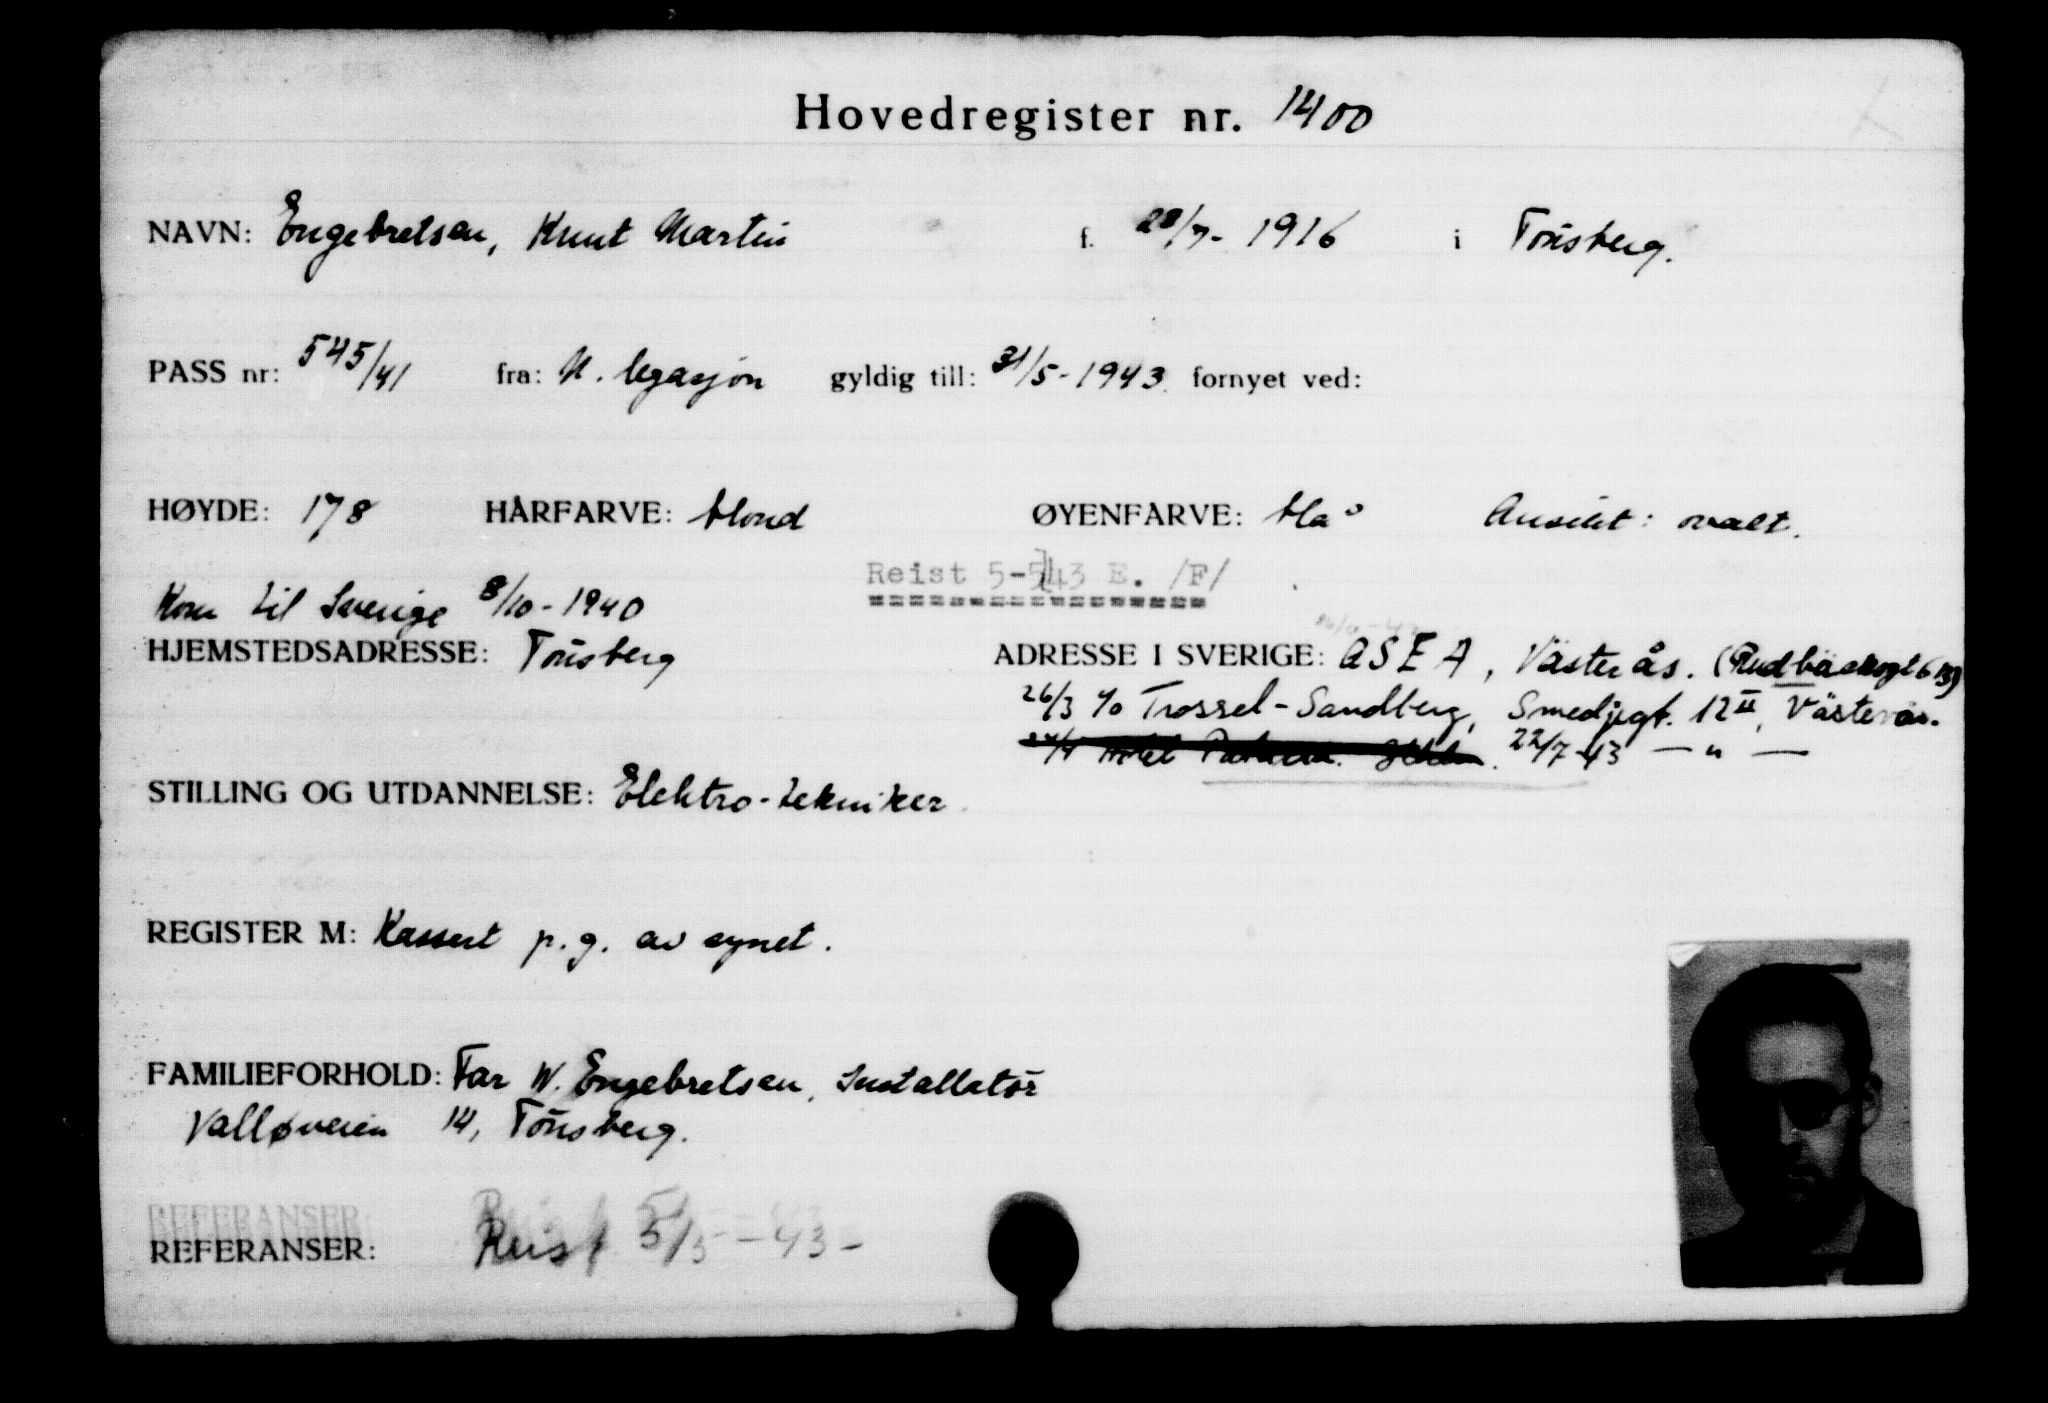 Hovedregister nr. 1400
NAVN: Engebretsen, Knut Martin f. 28/7- 1916 i Tönsberg.
PASS nr: 545/41 fra: N. legasjon gyldig till: 31/5-1943. fornyet ved:
HØYDE: 178 HÅRFARVE: blond ØYENFARVE: blå Ansikt: ovalt.
Reist 5-5-43 E. /F/
Kom til Sverige 8/10-1940
HJEMSTEDSADRESSE: Tönsberg ADRESSE I SVERIGE: ASEA, Västerås.
26/3 c/o Trossel-Sandberg, Smedjegt. 12 II, Västerås.
22/7-43 — " —
STILLING OG UTDANNELSE: Elektro-tekniker
REGISTER M: Kassert p.g. av synet.
FAMILIEFORHOLD: Far W. Engebretsen, Installatör
Valløveien 14, Tönsberg.
REFERANSER: Reist 5/5-43-